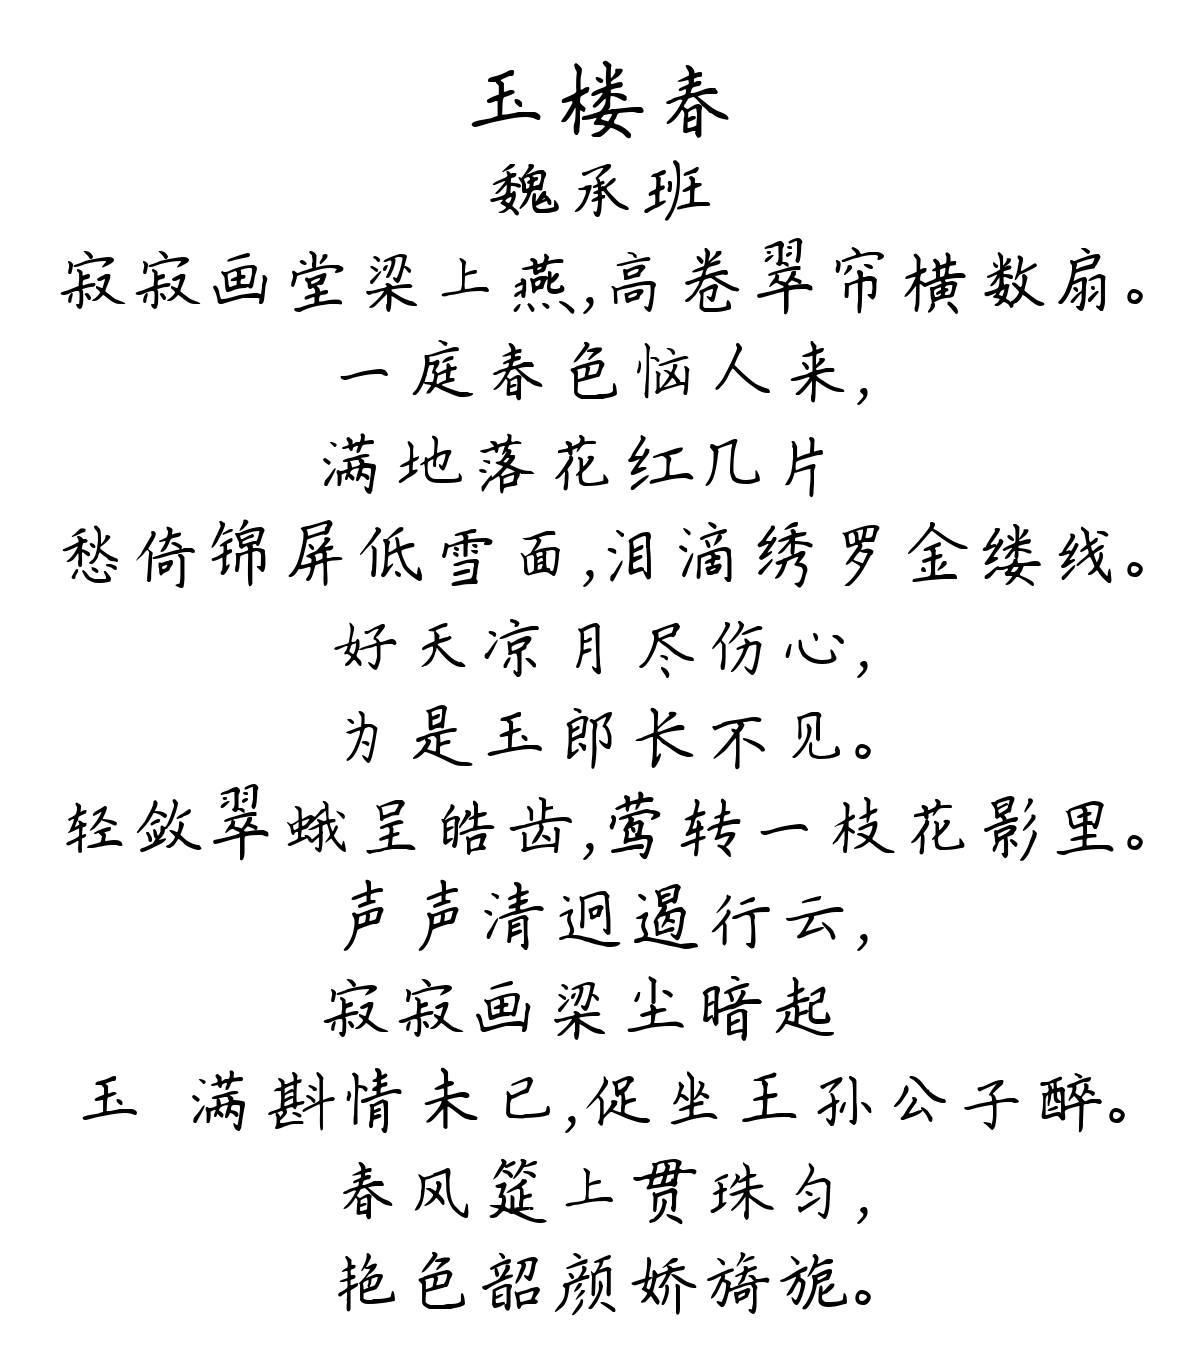 玉楼春
魏承班
寂寂画堂梁上燕,高卷翠帘横数扇。
一庭春色恼人来,
满地落花红几片
愁倚锦屏低雪面,泪滴绣罗金缕线。
好天凉月尽伤心,
为是玉郎长不见。
轻敛翠蛾呈皓齿,莺转一枝花影里。
声声清迥遏行云,
寂寂画梁尘暗起
玉 满斟情未已,促坐王孙公子醉。
春风筵上贯珠匀,
艳色韶颜娇旖旎。